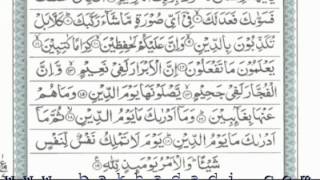 فَسَوّٰىكَ فَعَدَلَكَ ۙ فِیْۤ اَیِّ صُوْرَةٍ مَّا شَآءَ رَكَّبَكَ ؕ كَلَّا بَلْ
تُكَذِّبُوْنَ بِالدِّیْنِ ۙ وَاِنَّ عَلَیْكُمْ لَحٰفِظِیْنَ ۙ كِرَامًا كَاتِبِیْنَ ۙ
یَعْلَمُوْنَ مَا تَفْعَلُوْنَ ۞ اِنَّ الْاَبْرَارَ لَفِیْ نَعِیْمٍ ۚ وَّاِنَّ
الْفُجَّارَ لَفِیْ جَحِیْمٍ ۚ یَّصْلَوْنَهَا یَوْمَ الدِّیْنِ ۞ وَمَا هُمْ
عَنْهَا بِغَآئِبِیْنَ ؕ وَمَاۤ اَدْرٰىكَ مَا یَوْمُ الدِّیْنِ ۙ ثُمَّ مَاۤ
اَدْرٰىكَ مَا یَوْمُ الدِّیْنِ ؕ یَوْمَ لَا تَمْلِكُ نَفْسٌ لِّنَفْسٍ
شَیْئًا ؕ وَالْاَمْرُ یَوْمَئِذٍ لِّلّٰهِ